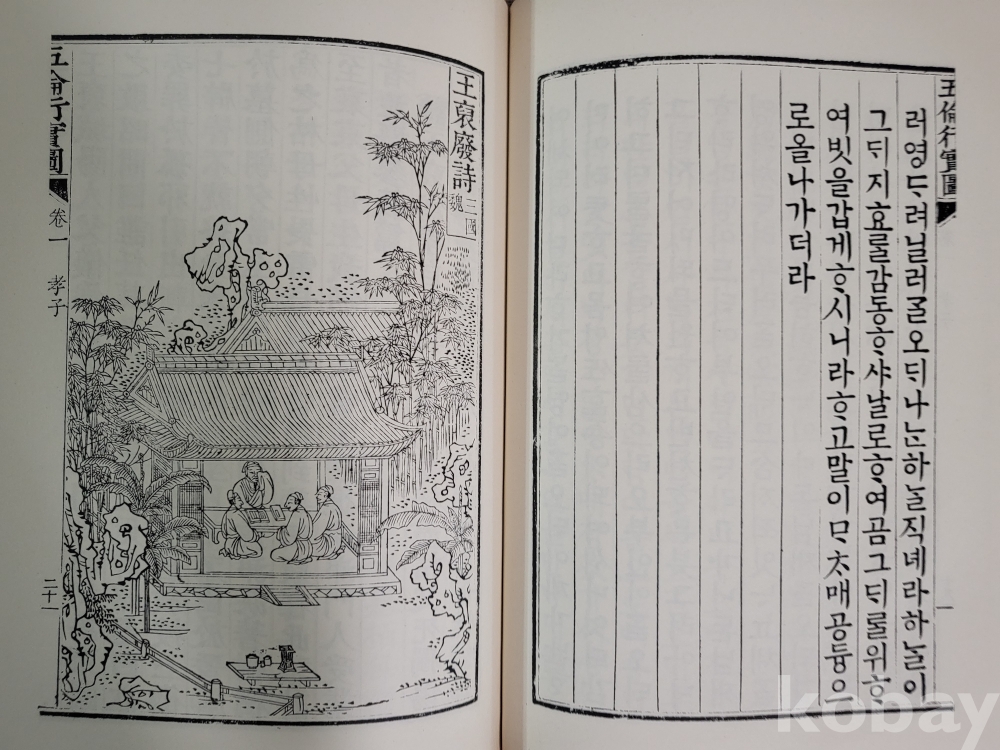 五倫行實圖
러영ᄃᆞ려닐러ᄀᆞᆯ오ᄃᆡ나ᄂᆞᆫ하ᄂᆞᆯ직녜라하ᄂᆞᆯ이
그ᄃᆡ지효ᄅᆞᆯ감동ᄒᆞ샤날로ᄒᆞ여곰그ᄃᆡᄅᆞᆯ위ᄒᆞ
여빗을갑게ᄒᆞ시니라ᄒᆞ고말이ᄆᆞᄎᆞ매공듕으
로올나가더라
王裒廢詩 三國 魏
五倫行實圖 卷一 孝子 二十一
kobay